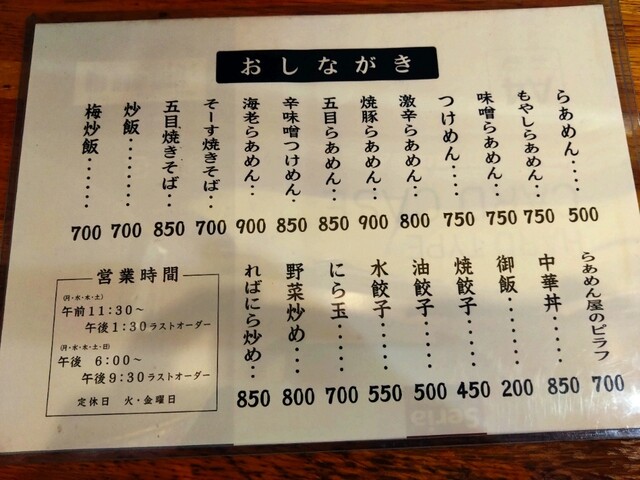 おしながき
らあめん‥‥ 500
もやしらあめん‥ 750
味噌らあめん‥ 750
つけめん‥‥ 750
激辛らあめん‥ 800
焼豚らあめん‥ 900
五目らあめん‥ 850
辛味噌つけめん‥ 850
海老らあめん‥ 900
そーす焼きそば‥ 700
五目焼きそば‥ 850
炒飯‥‥‥‥ 700
梅炒飯‥‥‥ 700
らあめん屋のピラフ 700
中華丼‥‥ 850
御飯‥‥‥ 200
焼餃子‥‥‥ 450
油餃子‥‥‥ 500
水餃子‥‥‥ 550
にら玉‥‥ 700
野菜炒め‥ 800
ればにら炒め‥ 850
営業時間
(月・水・木・土)
午前11:30～
午後1:30ラストオーダー
(月・水・木・土・日)
午後 6:00～
午後9:30ラストオーダー
定休日 火・金曜日
Seria